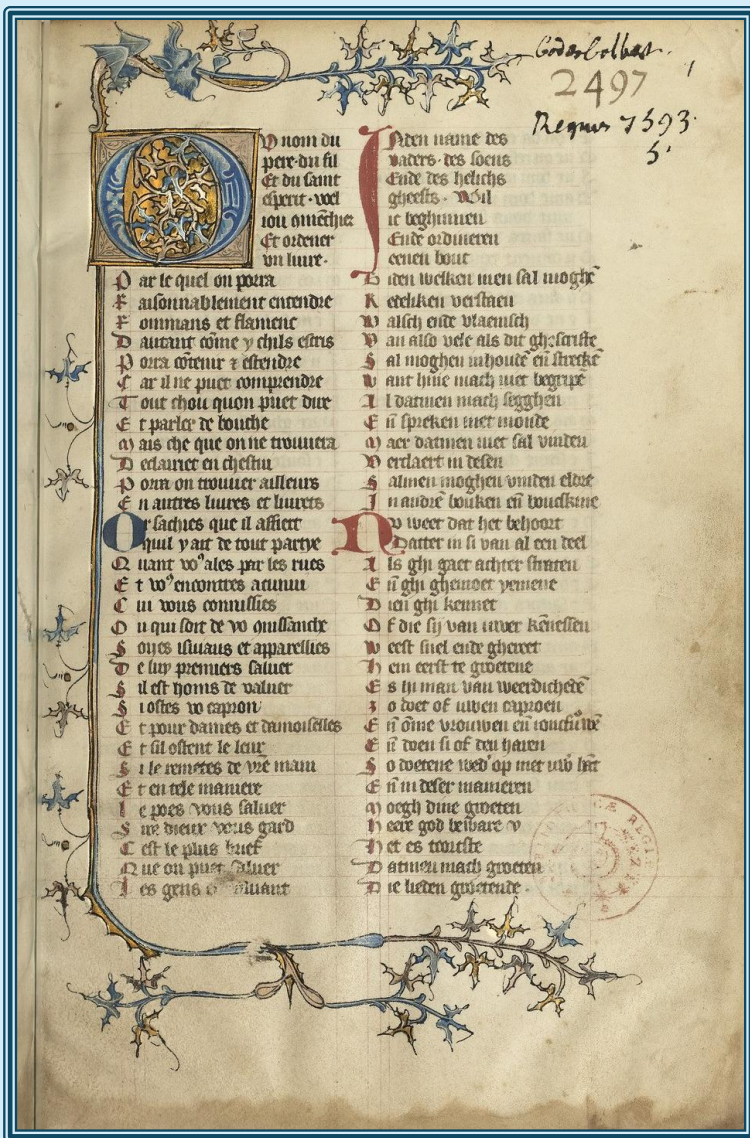 Codex Colbert.
2497
Regius 7593.
5.
O nom du
pere· du fil
Et du saint
esperit· voel
iou cōmēchier
Et ordener
vn liure·
Par le quel on porra
Raisonnablement entendre
Rommans et flamenc
Dautant cōme y chils escris
Porra cōtenir ⁊ estendre
Car il ne puet comprendre
Tout chou quon puet dire
Et parler de bouche
Mais che que on ne trouuera
Declairiet en chestui
Porra on trouuer ailleurs
En autres liures et liurets
Or sachies que il affiert
quil y ait de tout partye
Quant voꝰ ales par les rues
Et voꝰ encontres aucuni
Cui vous connissies
Ou qui soit de vo
Soyes isniaus et apparellies
De luy premiers saluer
Sil est homs de valuer
Si ostes vo capron
Et pour dames et damoiselles
Et sil ostent le leur
Si le remetes de vr̄e main
Et en tele maniere
Le poes vous saluer
Sire dieux vous gard
Cest le plus brief
Que on puet saluer
Les gens
INden name des
vaders· des soens
Ende des helichs
gheests· Wil
ic beghinnen
Ende ordineren
eenen bouc
Biden welken men sal moghē
Redeliken verstaen
Walsch ende vlaemsch
Van also vele als dit ghescrifte
Sal moghen inhoudē en̄ streckē
Want hine mach niet begripē
Al datmen mach segghen
En̄ spreken met monde
Maer datmen niet sal vinden
Verclaert in desen
Salmen moghen vinden eldre
In andrē bouken en̄ boucskine
Nv weet dat het behoort
Datter in si van al een deel
Als ghi gaet achter straten
En̄ ghi ghemoet yemene
Dien ghi kennet
Of die sij van uwer kēnessen
Weest snel ende ghereet
Hem eerst te groetene
Es hi man van weerdichedē
Zo doet of uwen caproen
En̄ ōme vrouwen en̄
En̄ doen si of den haren
So doetene wed' op met uw'
En̄ in deser manieren
Moegh dine groeten
Heere god beware v
Het es tcortste
Datmen mach groeten
Die lieden groetende·